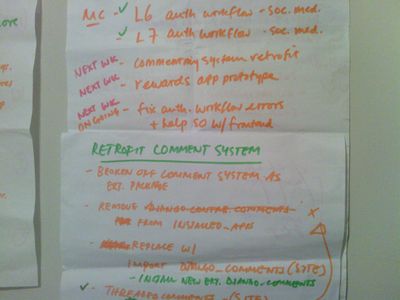 MC - ✓ L6 auth workflow - soc. med.
✓ L7 auth workflow - soc. med.
NEXT WK - commenting system retrofit
NEXT WK - rewards app prototype
NEXT WK - fix auth. workflow errors
ONGOING + help SO w/ frontend
RETROFIT COMMENT SYSTEM
- BROKEN OFF COMMENT SYSTEM AS
EXT. PACKAGE
- REMOVE DJANGO.CONTRIB.COMMENTS
FROM INSTALLED_APPS
- REPLACE W/
import DJANGO_COMMENTS (SITE)
- INSTALL NEW EXT. DJANGO_COMMENTS
✓ - THREADEDCOMMENTS (SITE)